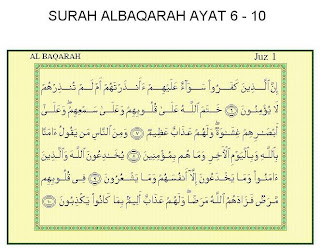 SURAH ALBAQARAH AYAT 6 - 10
AL BAQARAH
Juz 1
إِنَّ ٱلَّذِينَ كَفَرُوا۟ سَوَآءٌ عَلَيْهِمْ ءَأَنذَرْتَهُمْ أَمْ لَمْ تُنذِرْهُمْ
لَا يُؤْمِنُونَ ٦ خَتَمَ ٱللَّهُ عَلَىٰ قُلُوبِهِمْ وَعَلَىٰ سَمْعِهِمْ ۖ وَعَلَىٰٓ
أَبْصَـٰرِهِمْ غِشَـٰوَةٌ ۖ وَلَهُمْ عَذَابٌ عَظِيمٌ ٧ وَمِنَ ٱلنَّاسِ مَن يَقُولُ ءَامَنَّا
بِٱللَّهِ وَبِٱلْيَوْمِ ٱلْـَٔاخِرِ وَمَا هُم بِمُؤْمِنِينَ ٨ يُخَـٰدِعُونَ ٱللَّهَ وَٱلَّذِينَ
ءَامَنُوا۟ وَمَا يَخْدَعُونَ إِلَّآ أَنفُسَهُمْ وَمَا يَشْعُرُونَ ٩ فِى قُلُوبِهِم
مَّرَضٌ فَزَادَهُمُ ٱللَّهُ مَرَضًا ۖ وَلَهُمْ عَذَابٌ أَلِيمٌۢ بِمَا كَانُوا۟ يَكْذِبُونَ ١٠